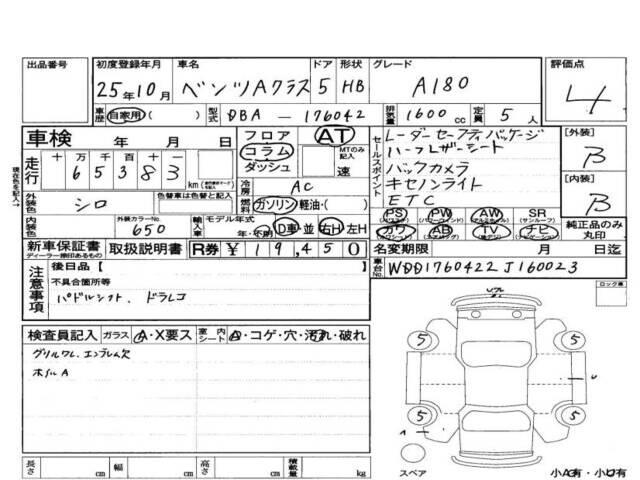 出品番号
初度登録年月 車名 ドア 形状 グレード 評価点
25年10月 ベンツAクラス 5 HB A180 4
車歴 自家用( ) 型式 DBA - 176042 排気量 1600cc 定員 5人
車検 年 月 日
フロア AT
コラム MTのみ記入
ダッシュ 速
セールスポイント
レーダーセーフティパッケージ
ハーフレザーシート
バックカメラ
キセノンライト
ETC
[外装] B
[内装] B
現在色を記入→
走行 十 万 千 百 十 一
6 5 3 8 3 km
冷房 AC
外装色 シロ 色替車は色替前の色
燃料 ガソリン・軽油・( )
内装色 外装カラーNo. 650
輸入車 モデル年式 年・不明 D車・並 右H・左H
PS PW AW SR
カワ AB TV ナビ
純正品のみ丸印
新車保証書 取扱説明書 R券 ¥19,450
ディーラー捺印あるもの
名変期限 月 日迄
車台No. WDD1760422J160023
注意事項
後日品【 】
不具合箇所等
パドルシフト、ドラレコ
ロック車
検査員記入 ガラス A・X要ス 室内シート A・コゲ・穴・汚れ・破れ
グリルワレ、エンブレム欠
ホイルA
5 5
5 5
A
U
スペア
小A有・小U有
長さ cm 幅 cm 高さ cm 積載量 kg